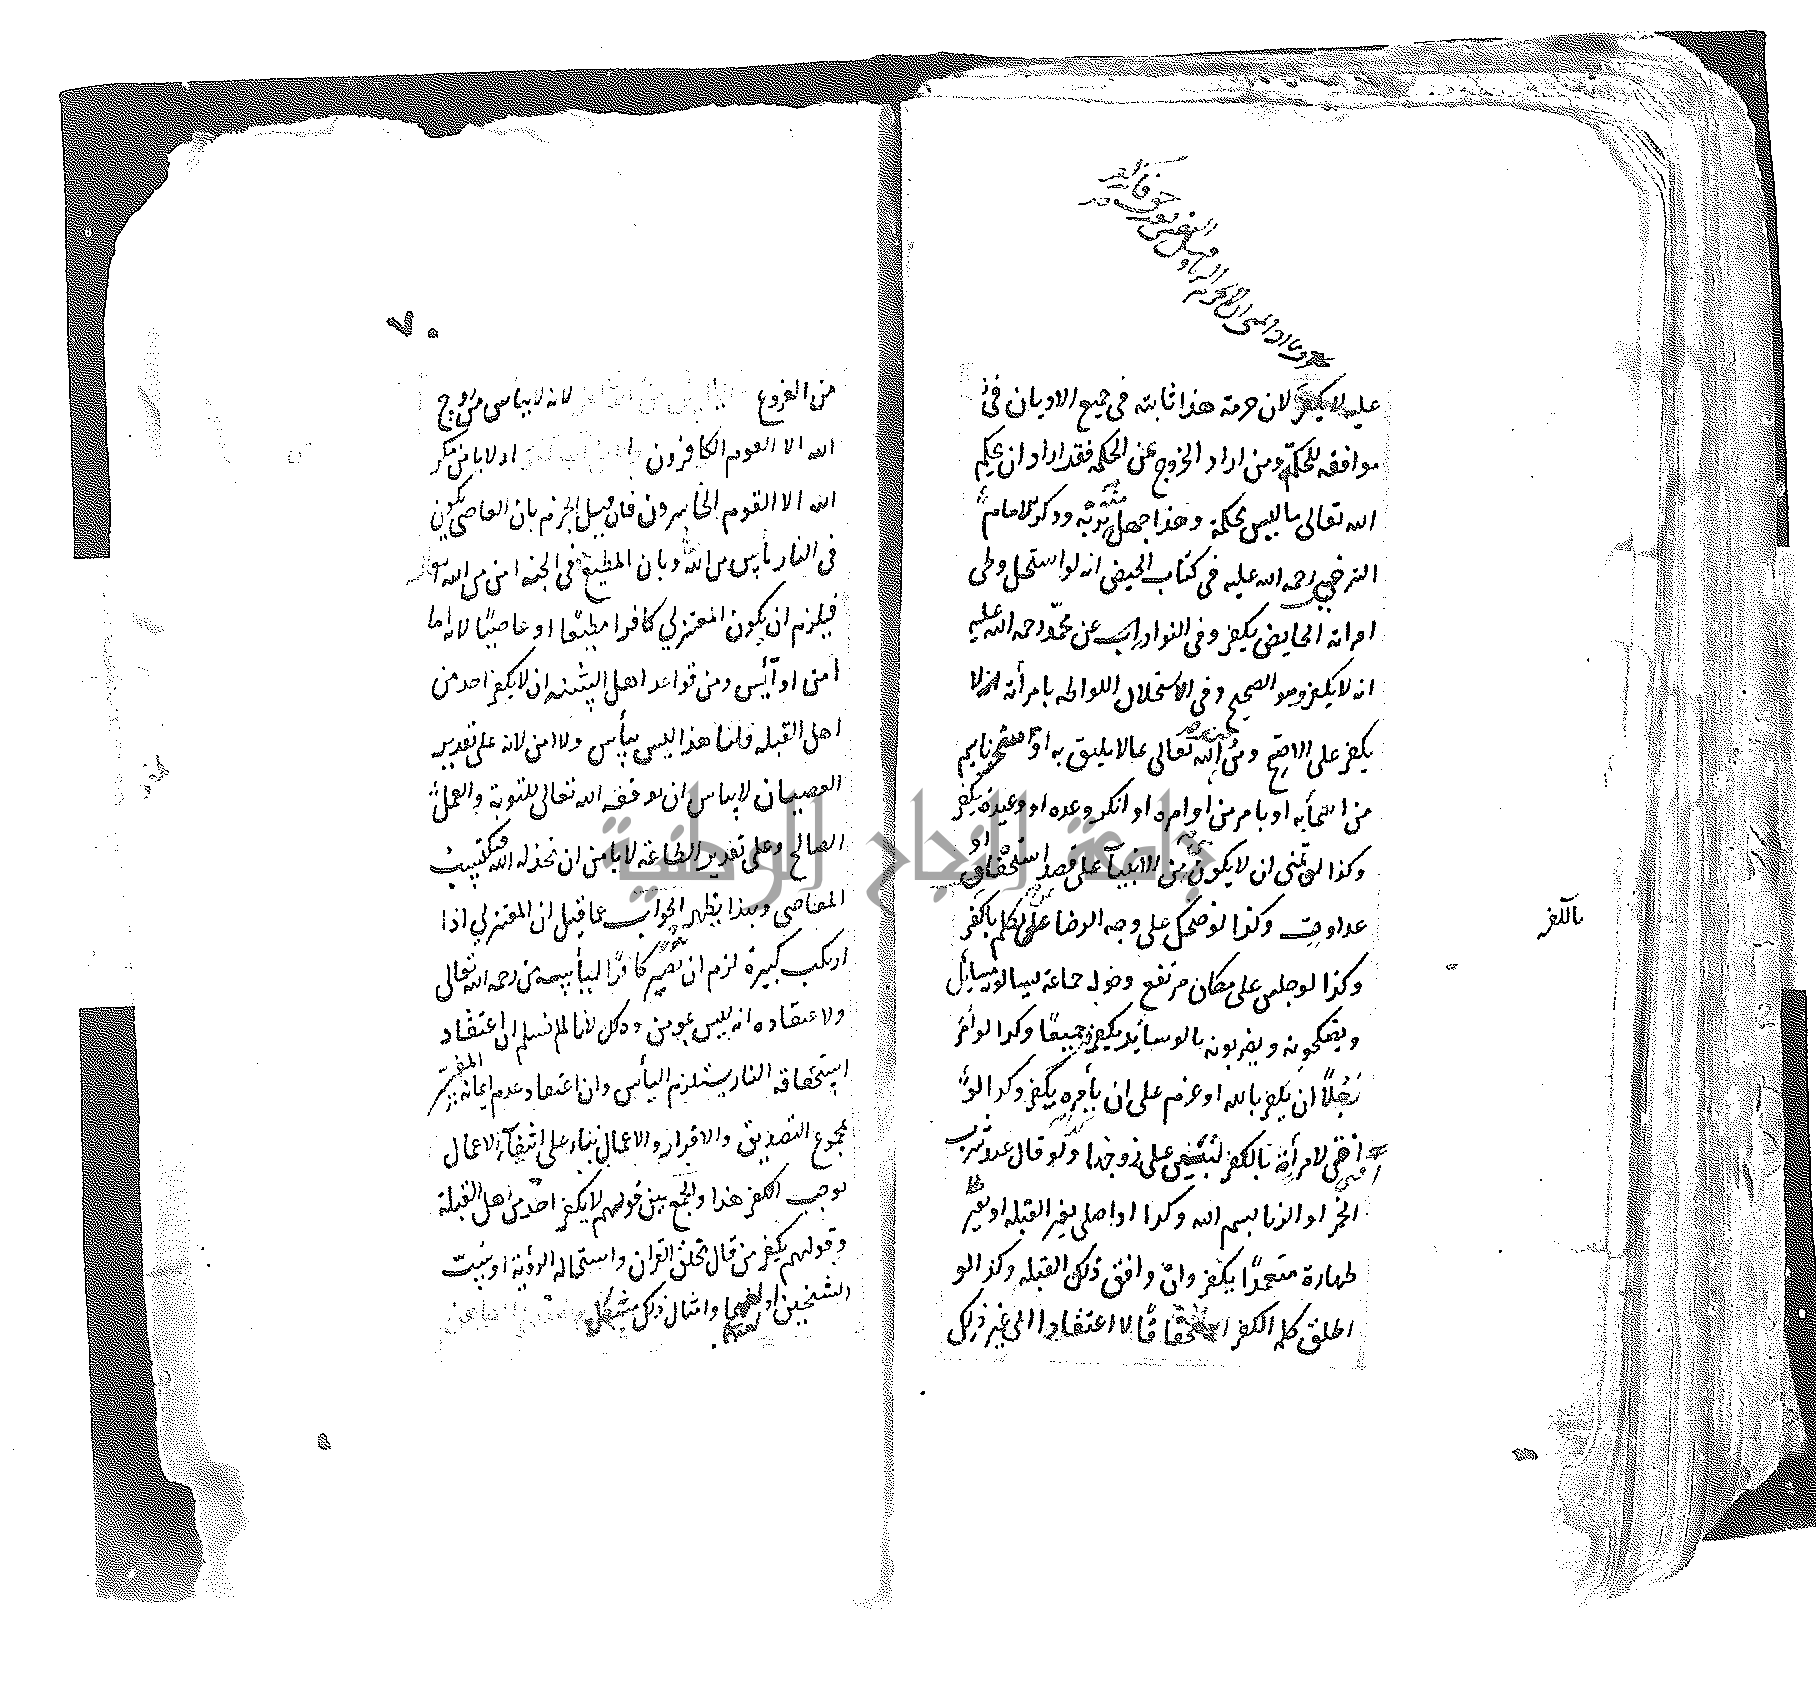 عليه لا يكفر لان حرمة هذا ثابته في جميع الاديان في
موافقه للحكمة ومن اراد الخروج عن الحكمه فقد اراد ان يحكم
الله تعالى ما ليس بحكمة وهذا جهل منه بربه وذكر الامام
السرخسي رحمه الله عليه في كتاب الحيض انه لو استحل وطى
امراته الحايض يكفر وفي النوادر عن محمد رحمه الله عليه
انه لا يكفر وهو الصحيح وفي الاستحلال اللواطه بامرأته لا
يكفر على الاصح ومن وصف الله تعالى بما لا يليق به او سخر باسم
من اسمائه او بامر من اوامره او انكر وعده او وعيده يكفر
وكذا لو تمنى ان لا يكون نبي من الانبيآ على قصد استخفاف او
عداوت وكذا لو ضحك على وجه الرضا على من تكلم بالكفر
وكذا لو جلس على مكان مرتفع وحوله جماعة يسالو مسايل
ويضحكونه ويضربونه بالوسايد يكفرون جميعا وكذا لو امر
رجلاً ان يكفر بالله او عزم على ان يأمره يكفر وكذا لو
افتى لامرأة بالكفر لتبين على زوجها وكذا لو قال عند شرب
الخمر او الزنا بسم الله وكذا اذا صلى بغير القبله او بغير
طهارة متعمدًا يكفر وان وافق ذلك القبله وكذا لو
اطلق كلمه الكفر استخفافًا لا اعتقادا الى غير ذلك
بالكفر
٧٠
من الفروع لانه لا ييأس من روح
الله الا القوم الكافرون اذ لا يامن مكر
الله الا القوم الخاسرون فان قيل الجزم بان العاصي يكون
في النار يأس من الله وبان المطيع في الجنه امن من الله
فيلزم ان يكون المعتزلي كافرا مطيعًا او عاصيًا لانه اما
امن او آيس ومن قواعد اهل السنه ان لا يكفر احد من
اهل القبله قلنا هذا ليس بيأس ولا امن لانه على تقدير
العصيان لا ييأس ان يوفقه الله تعالى للتوبة والعمل
الصالح وعلى تقدير الطاعة لا يأمن ان يخذله الله فيكتسب
المعاصي وبهذا يظهر الجواب عما قيل ان المعتزلي اذا
ارتكب كبيرة لزم ان يصير كافرًا ليأسه من رحمه الله تعالى
ولاعتقاده انه ليس بمومن وذلك لأنا لا نسلم ان اعتقاد
استحقاقه النار يستلزم اليأس وان اعتقاد عدم ايمانه المفسر
بمجموع التصديق والاقرار والاعمال بناء على انتفآء الاعمال
يوجب الكفر هذا والجمع بين قولهم لا يكفر احد من اهل القبلة
وقولهم يكفر من قال بخلق القران واستحاله الرؤية او سب
الشيخين او لعنهما وامثال ذلك مشكل
جامعة النجاح الوطنية